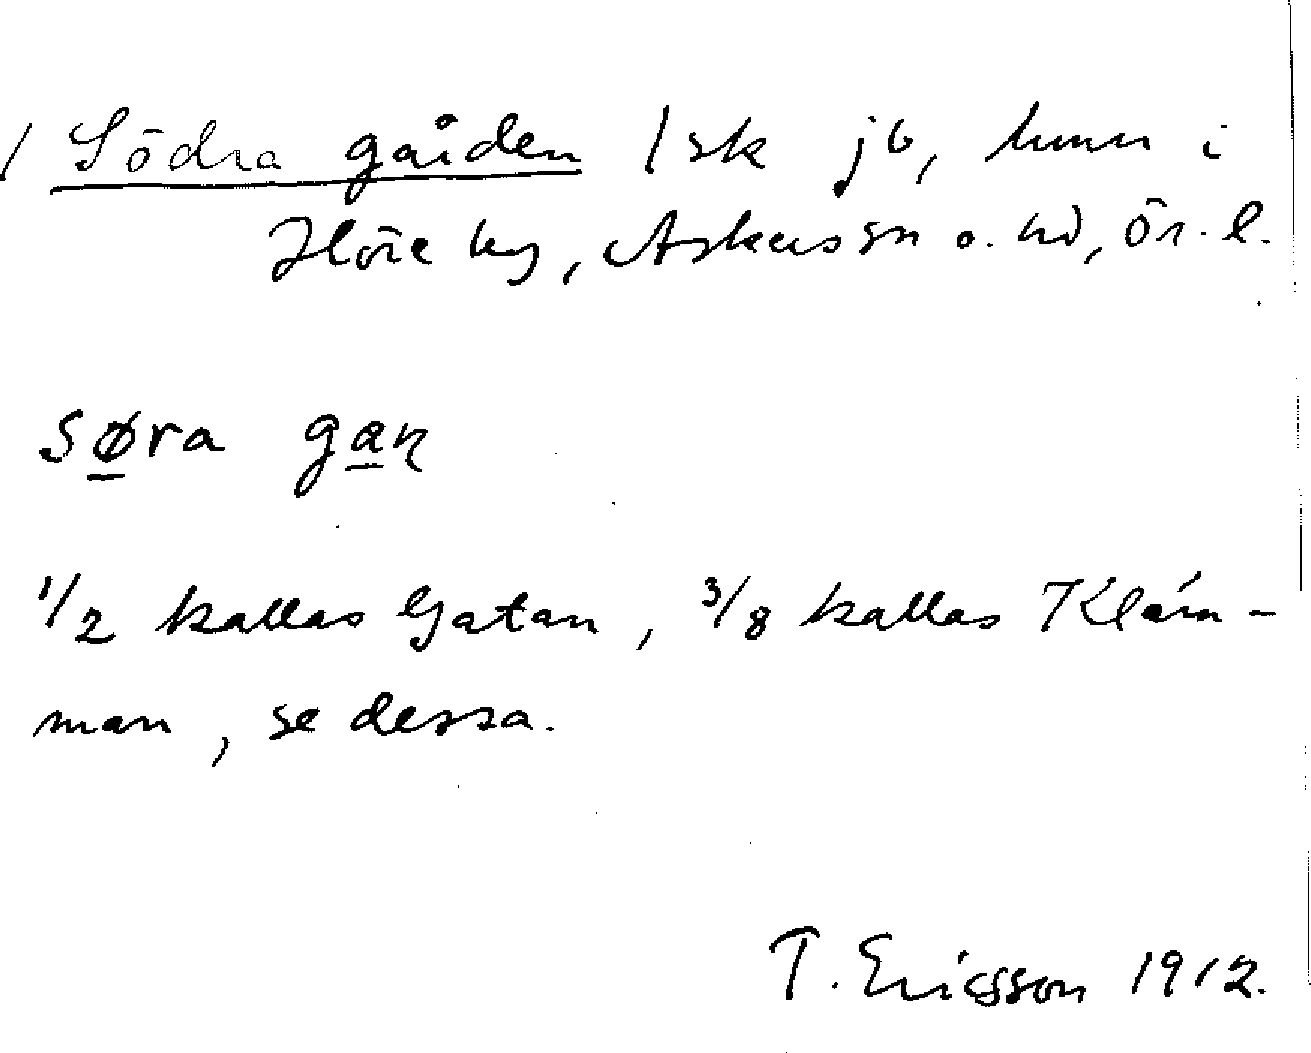 / Södra gården 1 sk jb, hmn i
by, Askers sn o. hd, Ör. l.
søra gaɳ
1/2 kallas Gatan, 3/8 kallas Klám-
man, se dessa.
T. Ericsson 1912.